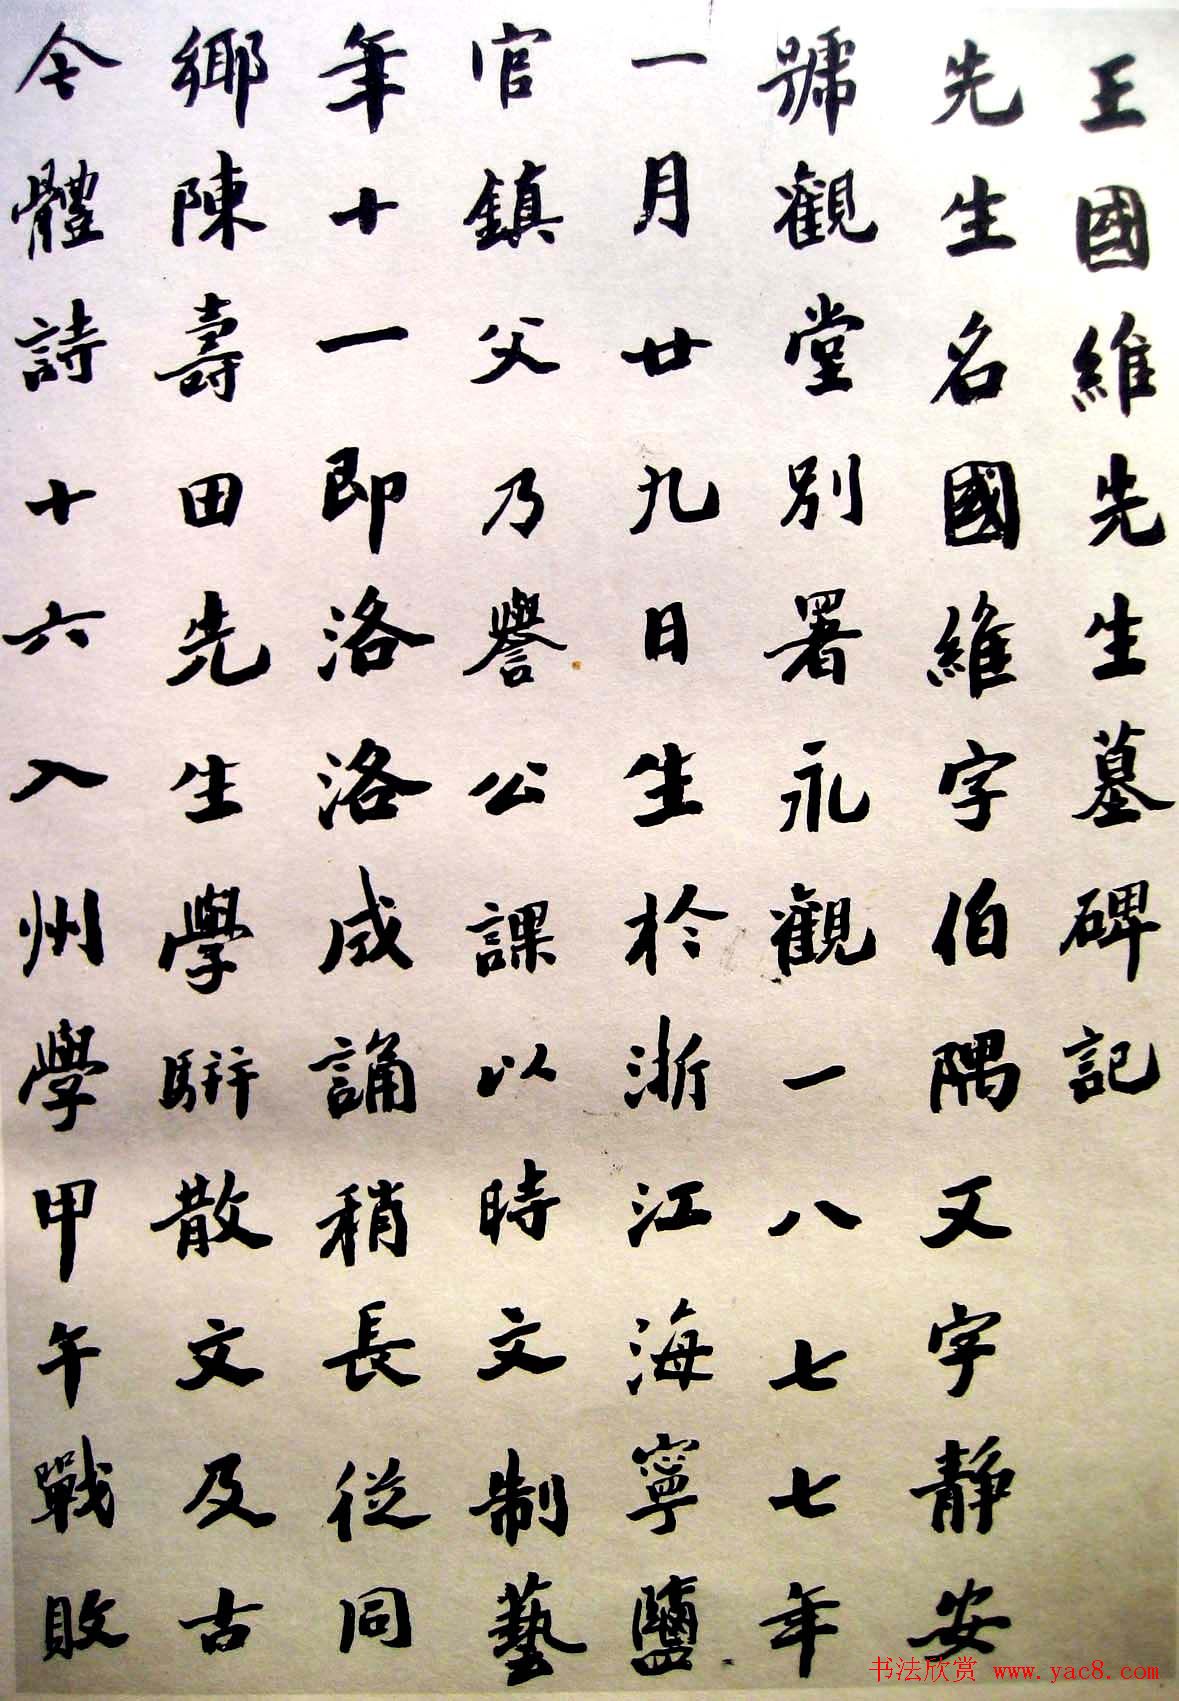 王國維先生墓碑記
先生名國維字伯隅又字静安
號觀堂別署永觀一八七七年
一月廿九日生於浙江海寧鹽
官鎮父乃譽公課以時文制藝
年十一即洛洛成誦稍長從同
鄉陳壽田先生學駢散文及古
今體詩十六入州學甲午戰敗
书法欣赏 www.yac8.com